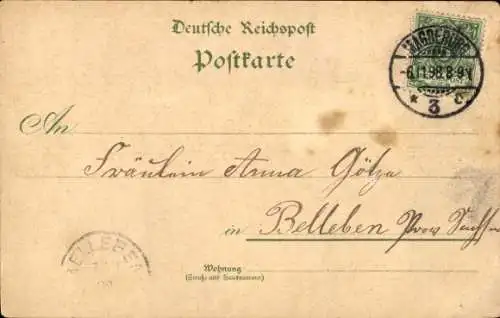 Deutsche Reichspost
Postkarte
MAGDEBURG
-6.11.98.8-9V.
* 3 c.
An
Fräulein Anna Götze
in Belleben Prov Sachsen
BELLEBEN
Wohnung
(Straße und Hausnummer)